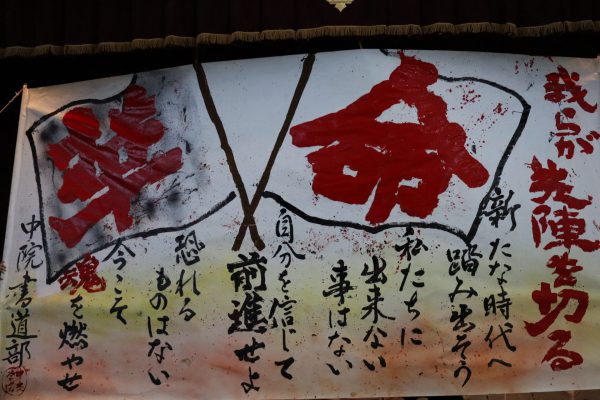 我らが先陣を切る
革命
新たな時代へ
踏み出そう
私たちに
出来ない
事はない
自分を信じて
前進せよ
恐れる
ものはない
今こそ
魂を燃やせ
中院書道部